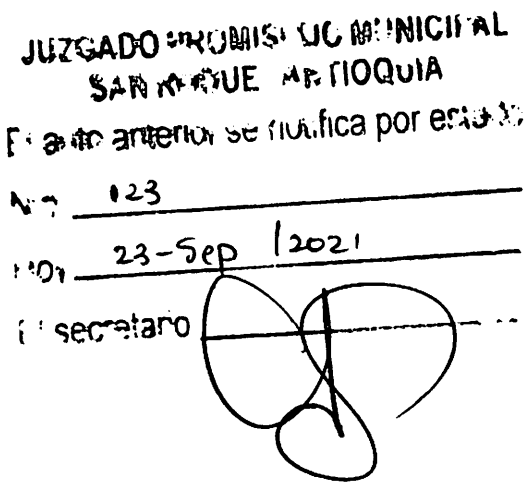 JUZGADO PROMISCUO MUNICIPAL
SAN ROQUE ANTIOQUIA
El auto anterior se notifica por estado
Nº 123
HOY 23-Sep/2021
El secretario